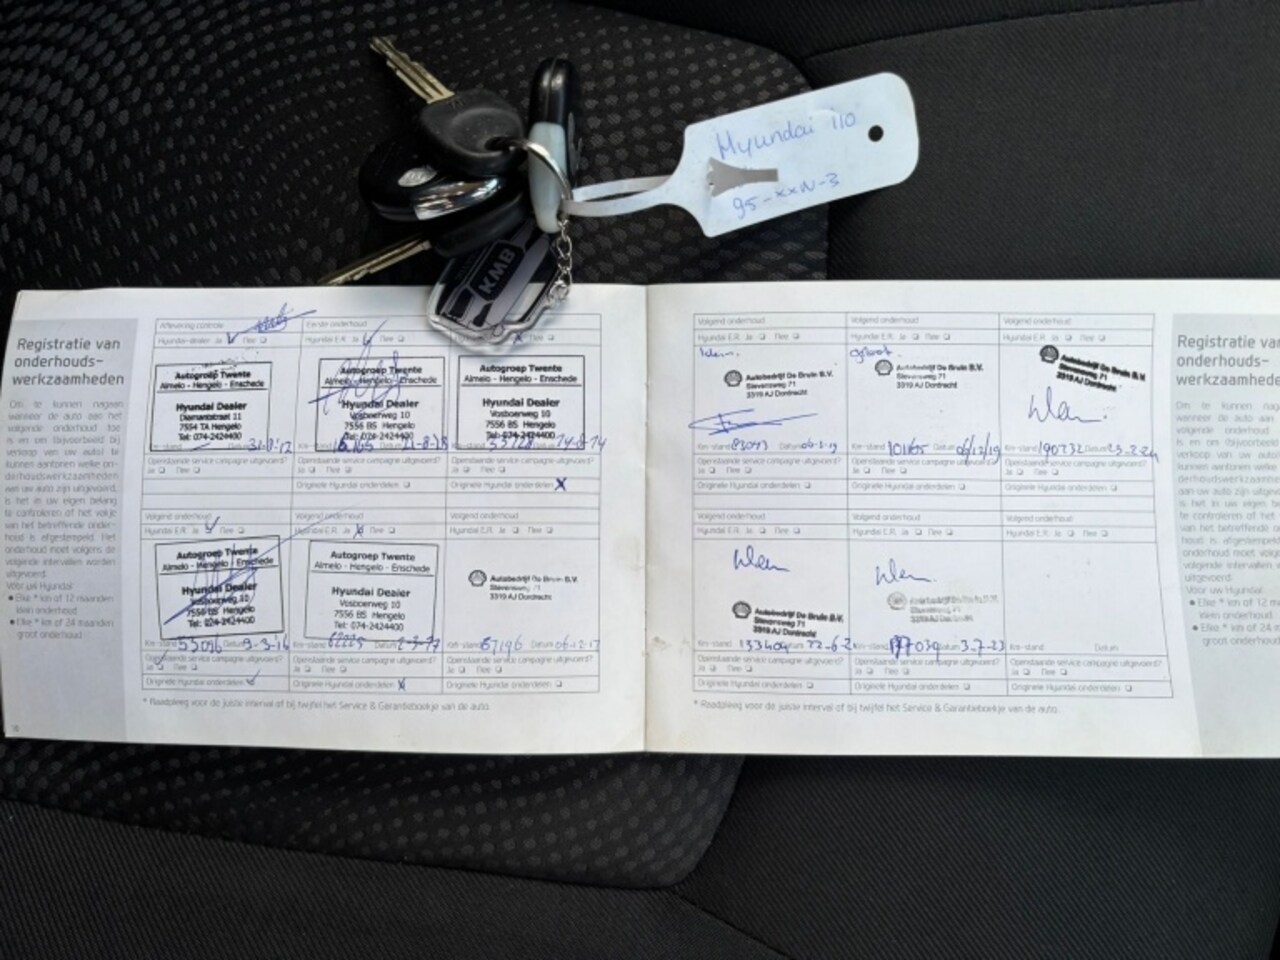 Hyundai i10
95-xxN-3
KMB
Registratie van
onderhouds-
werkzaamheden
Om te kunnen nagaan
wanneer de auto aan het
volgende onderhoud toe
is en om (bijvoorbeeld bij
verkoop van uw auto) te
kunnen aantonen welke on-
derhoudswerkzaamheden
aan uw auto zijn uitgevoerd,
is het in uw eigen belang
te controleren of het vakje
van het betreffende onder-
houd is afgestempeld. Het
onderhoud moet volgens de
volgende intervallen worden
uitgevoerd:
Voor uw Hyundai:
● Elke * km of 12 maanden
klein onderhoud
● Elke * km of 24 maanden
groot onderhoud
Aflevering controle
Hyundai-dealer Ja Nee
Autogroep Twente
Almelo - Hengelo - Enschede
Hyundai Dealer
Diamantstraat 11
7554 TA Hengelo
Tel: 074-2424400
Km-stand Datum 31-8-12
Openstaande service campagne uitgevoerd?
Ja Nee
Eerste onderhoud
Hyundai E.R. Ja Nee
Autogroep Twente
Almelo - Hengelo - Enschede
Hyundai Dealer
Vosboerweg 10
7556 BS Hengelo
Tel: 074-2424400
Openstaande service campagne uitgevoerd?
Ja Nee
Originele Hyundai onderdelen
Autogroep Twente
Almelo - Hengelo - Enschede
Hyundai Dealer
Vosboerweg 10
7556 BS Hengelo
Tel: 074-2424400
Openstaande service campagne uitgevoerd?
Ja Nee
Originele Hyundai onderdelen X
Volgend onderhoud
Hyundai E.R. Ja Nee
Autogroep Twente
Almelo - Hengelo - Enschede
Hyundai Dealer
Vosboerweg 10
7556 BS Hengelo
Tel: 074-2424400
Km-stand 53096 Datum 9-3-16
Openstaande service campagne uitgevoerd?
Ja Nee
Originele Hyundai onderdelen
Volgend onderhoud
Hyundai E.R. Ja Nee
Autogroep Twente
Almelo - Hengelo - Enschede
Hyundai Dealer
Vosboerweg 10
7556 BS Hengelo
Tel: 074-2424400
Km-stand 62225 Datum 2-3-17
Openstaande service campagne uitgevoerd?
Ja Nee
Originele Hyundai onderdelen X
Volgend onderhoud
Hyundai E.R. Ja Nee
Autobedrijf De Bruin B.V.
Stevensweg 71
3319 AJ Dordrecht
Km-stand 67196 Datum 06-12-17
Openstaande service campagne uitgevoerd?
Ja Nee
Originele Hyundai onderdelen
* Raadpleeg voor de juiste interval of bij twijfel het Service & Garantieboekje van de auto.
Volgend onderhoud
Hyundai E.R. Ja Nee
Klein.
Autobedrijf De Bruin B.V.
Stevensweg 71
3319 AJ Dordrecht
Km-stand 83093 Datum
Openstaande service campagne uitgevoerd?
Ja Nee
Originele Hyundai onderdelen
Volgend onderhoud
Hyundai E.R. Ja Nee
groot.
Autobedrijf De Bruin B.V.
Stevensweg 71
3319 AJ Dordrecht
Km-stand 101165 Datum 06/12/19
Openstaande service campagne uitgevoerd?
Ja Nee
Originele Hyundai onderdelen
Volgend onderhoud
Hyundai E.R. Ja Nee
Autobedrijf De Bruin B.V.
Stevensweg 71
3319 AJ Dordrecht
Klein.
Km-stand 190232 Datum 23-2-24
Openstaande service campagne uitgevoerd?
Ja Nee
Originele Hyundai onderdelen
Volgend onderhoud
Hyundai E.R. Ja Nee
Klein
Autobedrijf De Bruin B.V.
Stevensweg 71
3319 AJ Dordrecht
Km-stand 133404 Datum
Openstaande service campagne uitgevoerd?
Ja Nee
Originele Hyundai onderdelen
Volgend onderhoud
Hyundai E.R. Ja Nee
Klein.
Autobedrijf De Bruin B.V.
Stevensweg 71
3319 AJ Dordrecht
Km-stand 177039 Datum 3-7-23
Openstaande service campagne uitgevoerd?
Ja Nee
Originele Hyundai onderdelen
Volgend onderhoud
Hyundai E.R. Ja Nee
Km-stand Datum
Openstaande service campagne uitgevoerd?
Ja Nee
Originele Hyundai onderdelen
* Raadpleeg voor de juiste interval of bij twijfel het Service & Garantieboekje van de auto.
Registratie van
onderhouds-
werkzaamhede